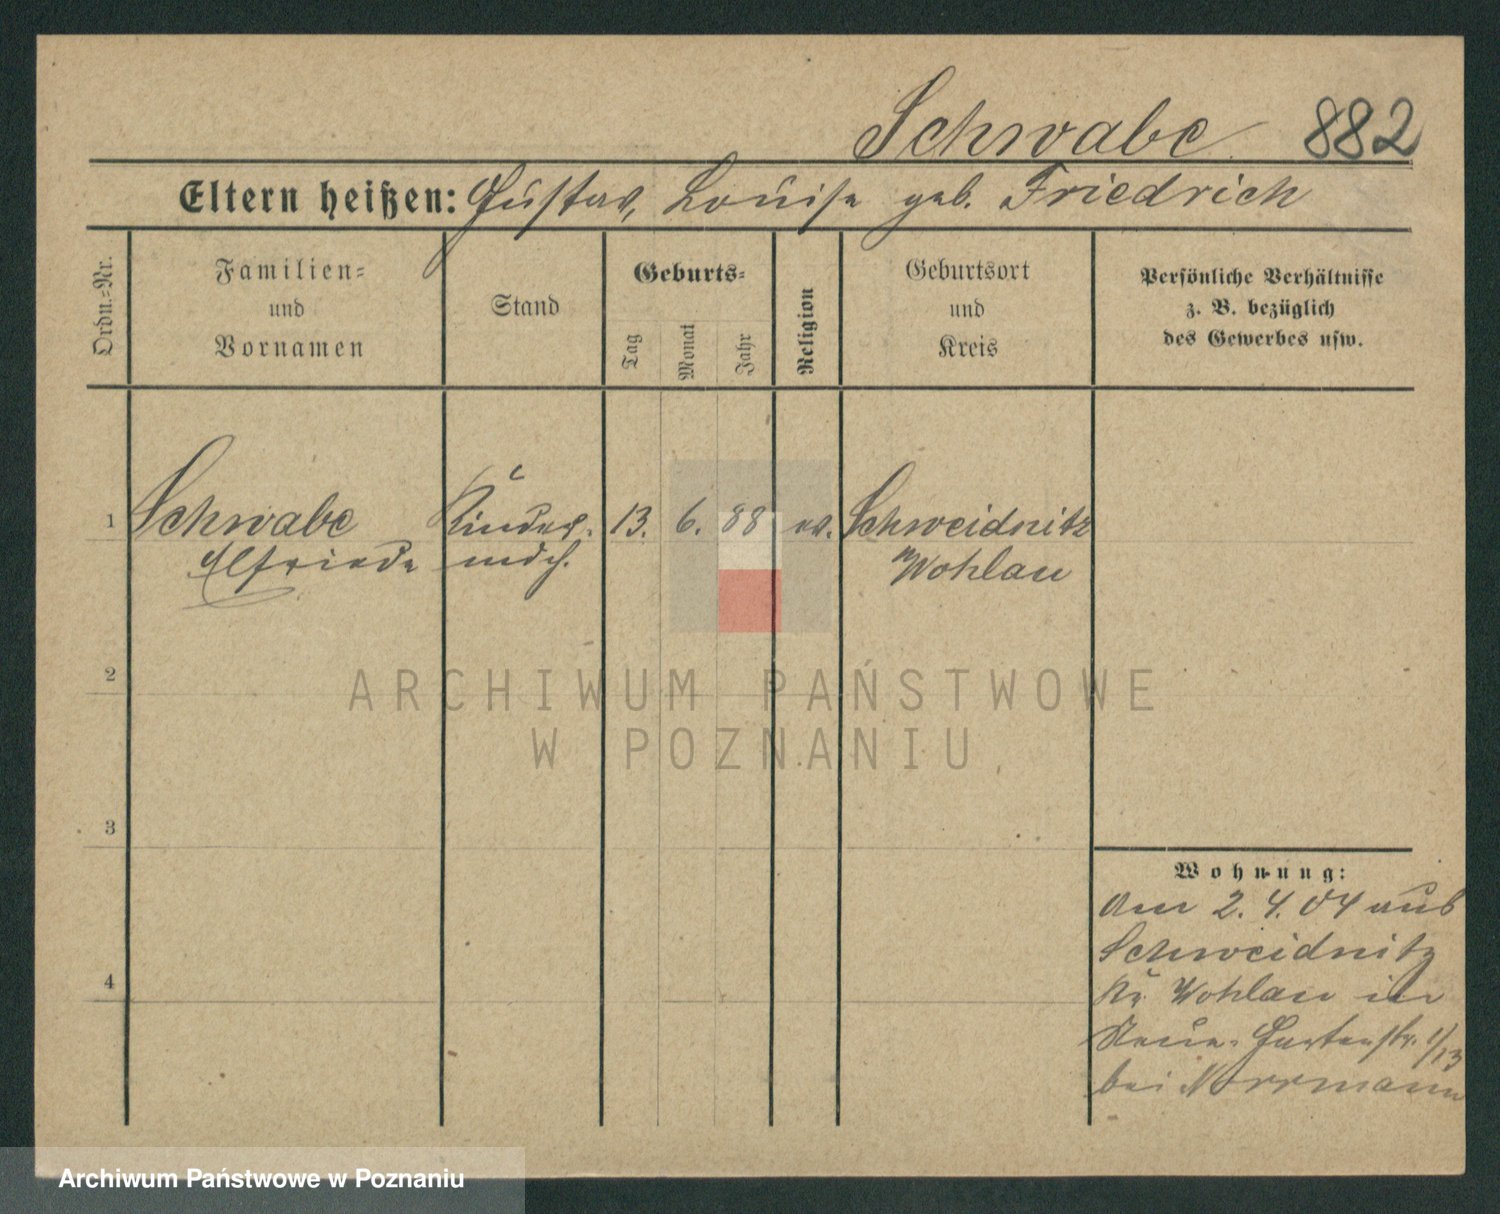 Schwabe 882
Eltern heißen: Gustav, Louise geb. Friedrich
Ordn.=Nr.
Familien=
und
Vornamen
Stand
Geburts=
Tag
Monat
Jahr
Religion
Geburtsort
und
Kreis
Persönliche Verhältnisse
z. B. bezüglich
des Gewerbes usw.
1 Schwabe Kinder- 13. 6. 88 ev. Schweidnitz
Elfriede mdch. Wohlau
2
3
4
Wohnung:
Am 2. 4. 04 aus
Schweidnitz
Kr. Wohlau in
Neue-Gartenstr.
bei Norrmann
ARCHIWUM PAŃSTWOWE
W POZNANIU
Archiwum Państwowe w Poznaniu